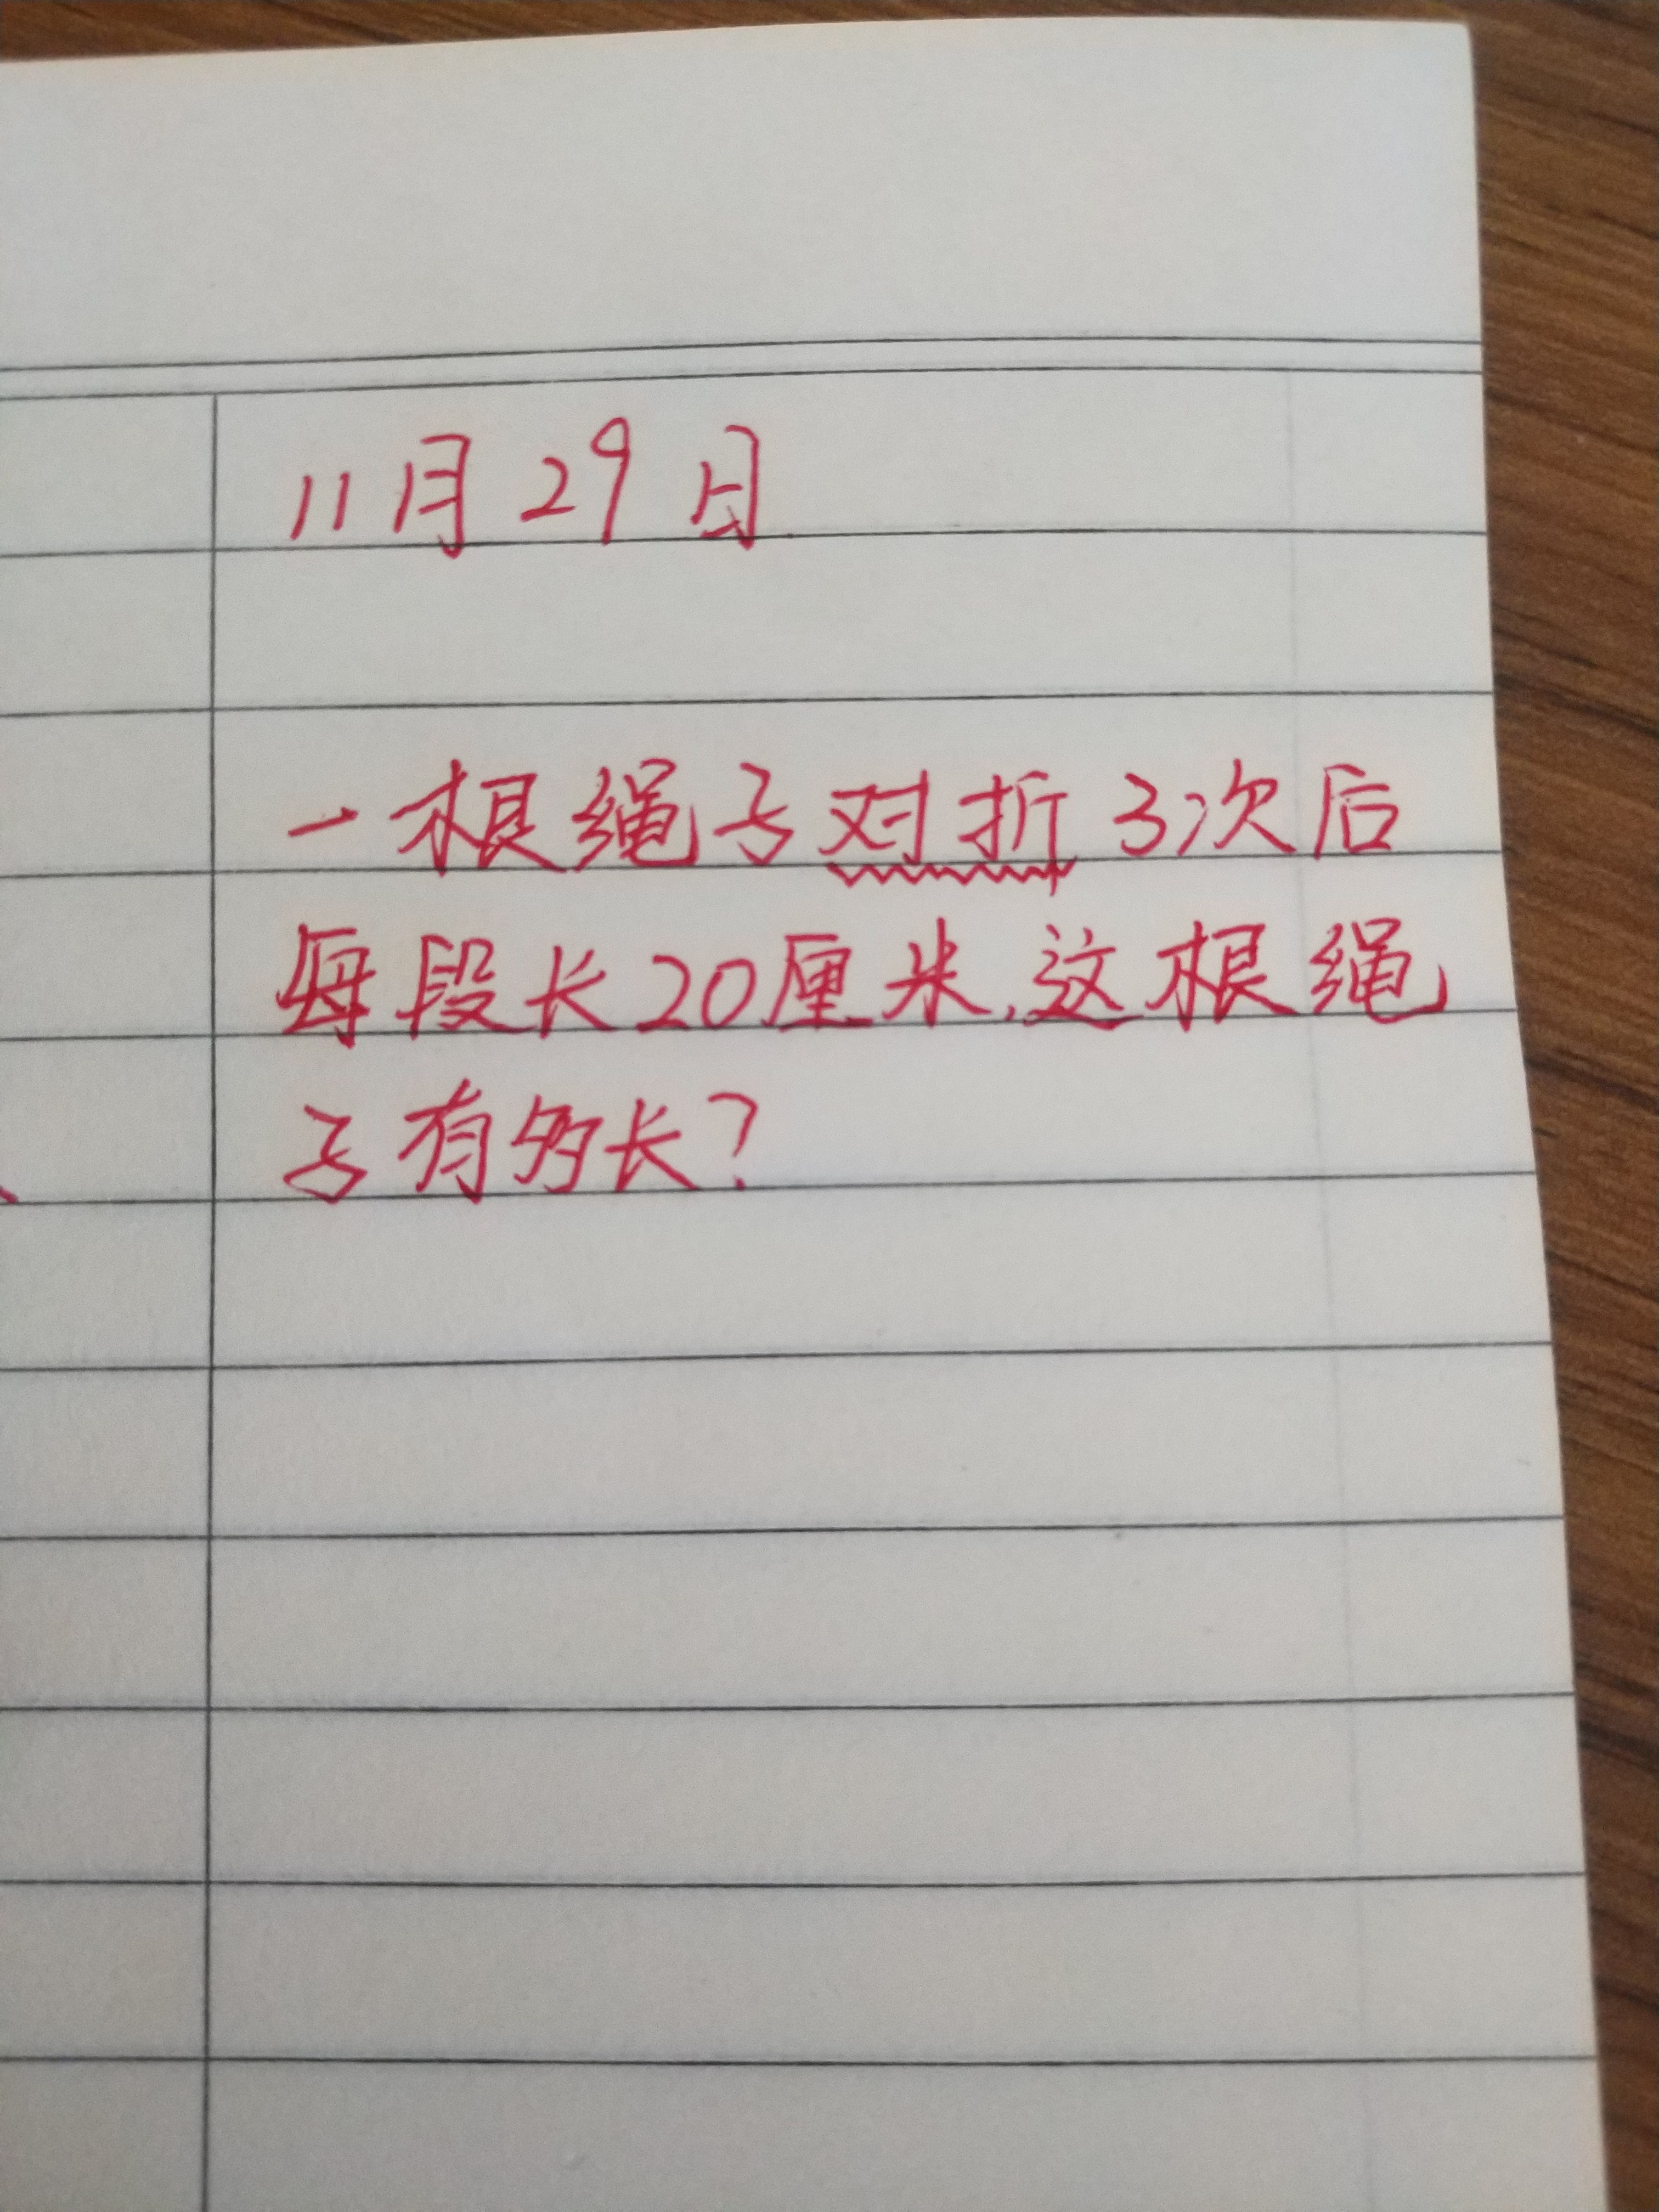 11月29日
一根绳子对折3次后
每段长20厘米,这根绳
子有多长?